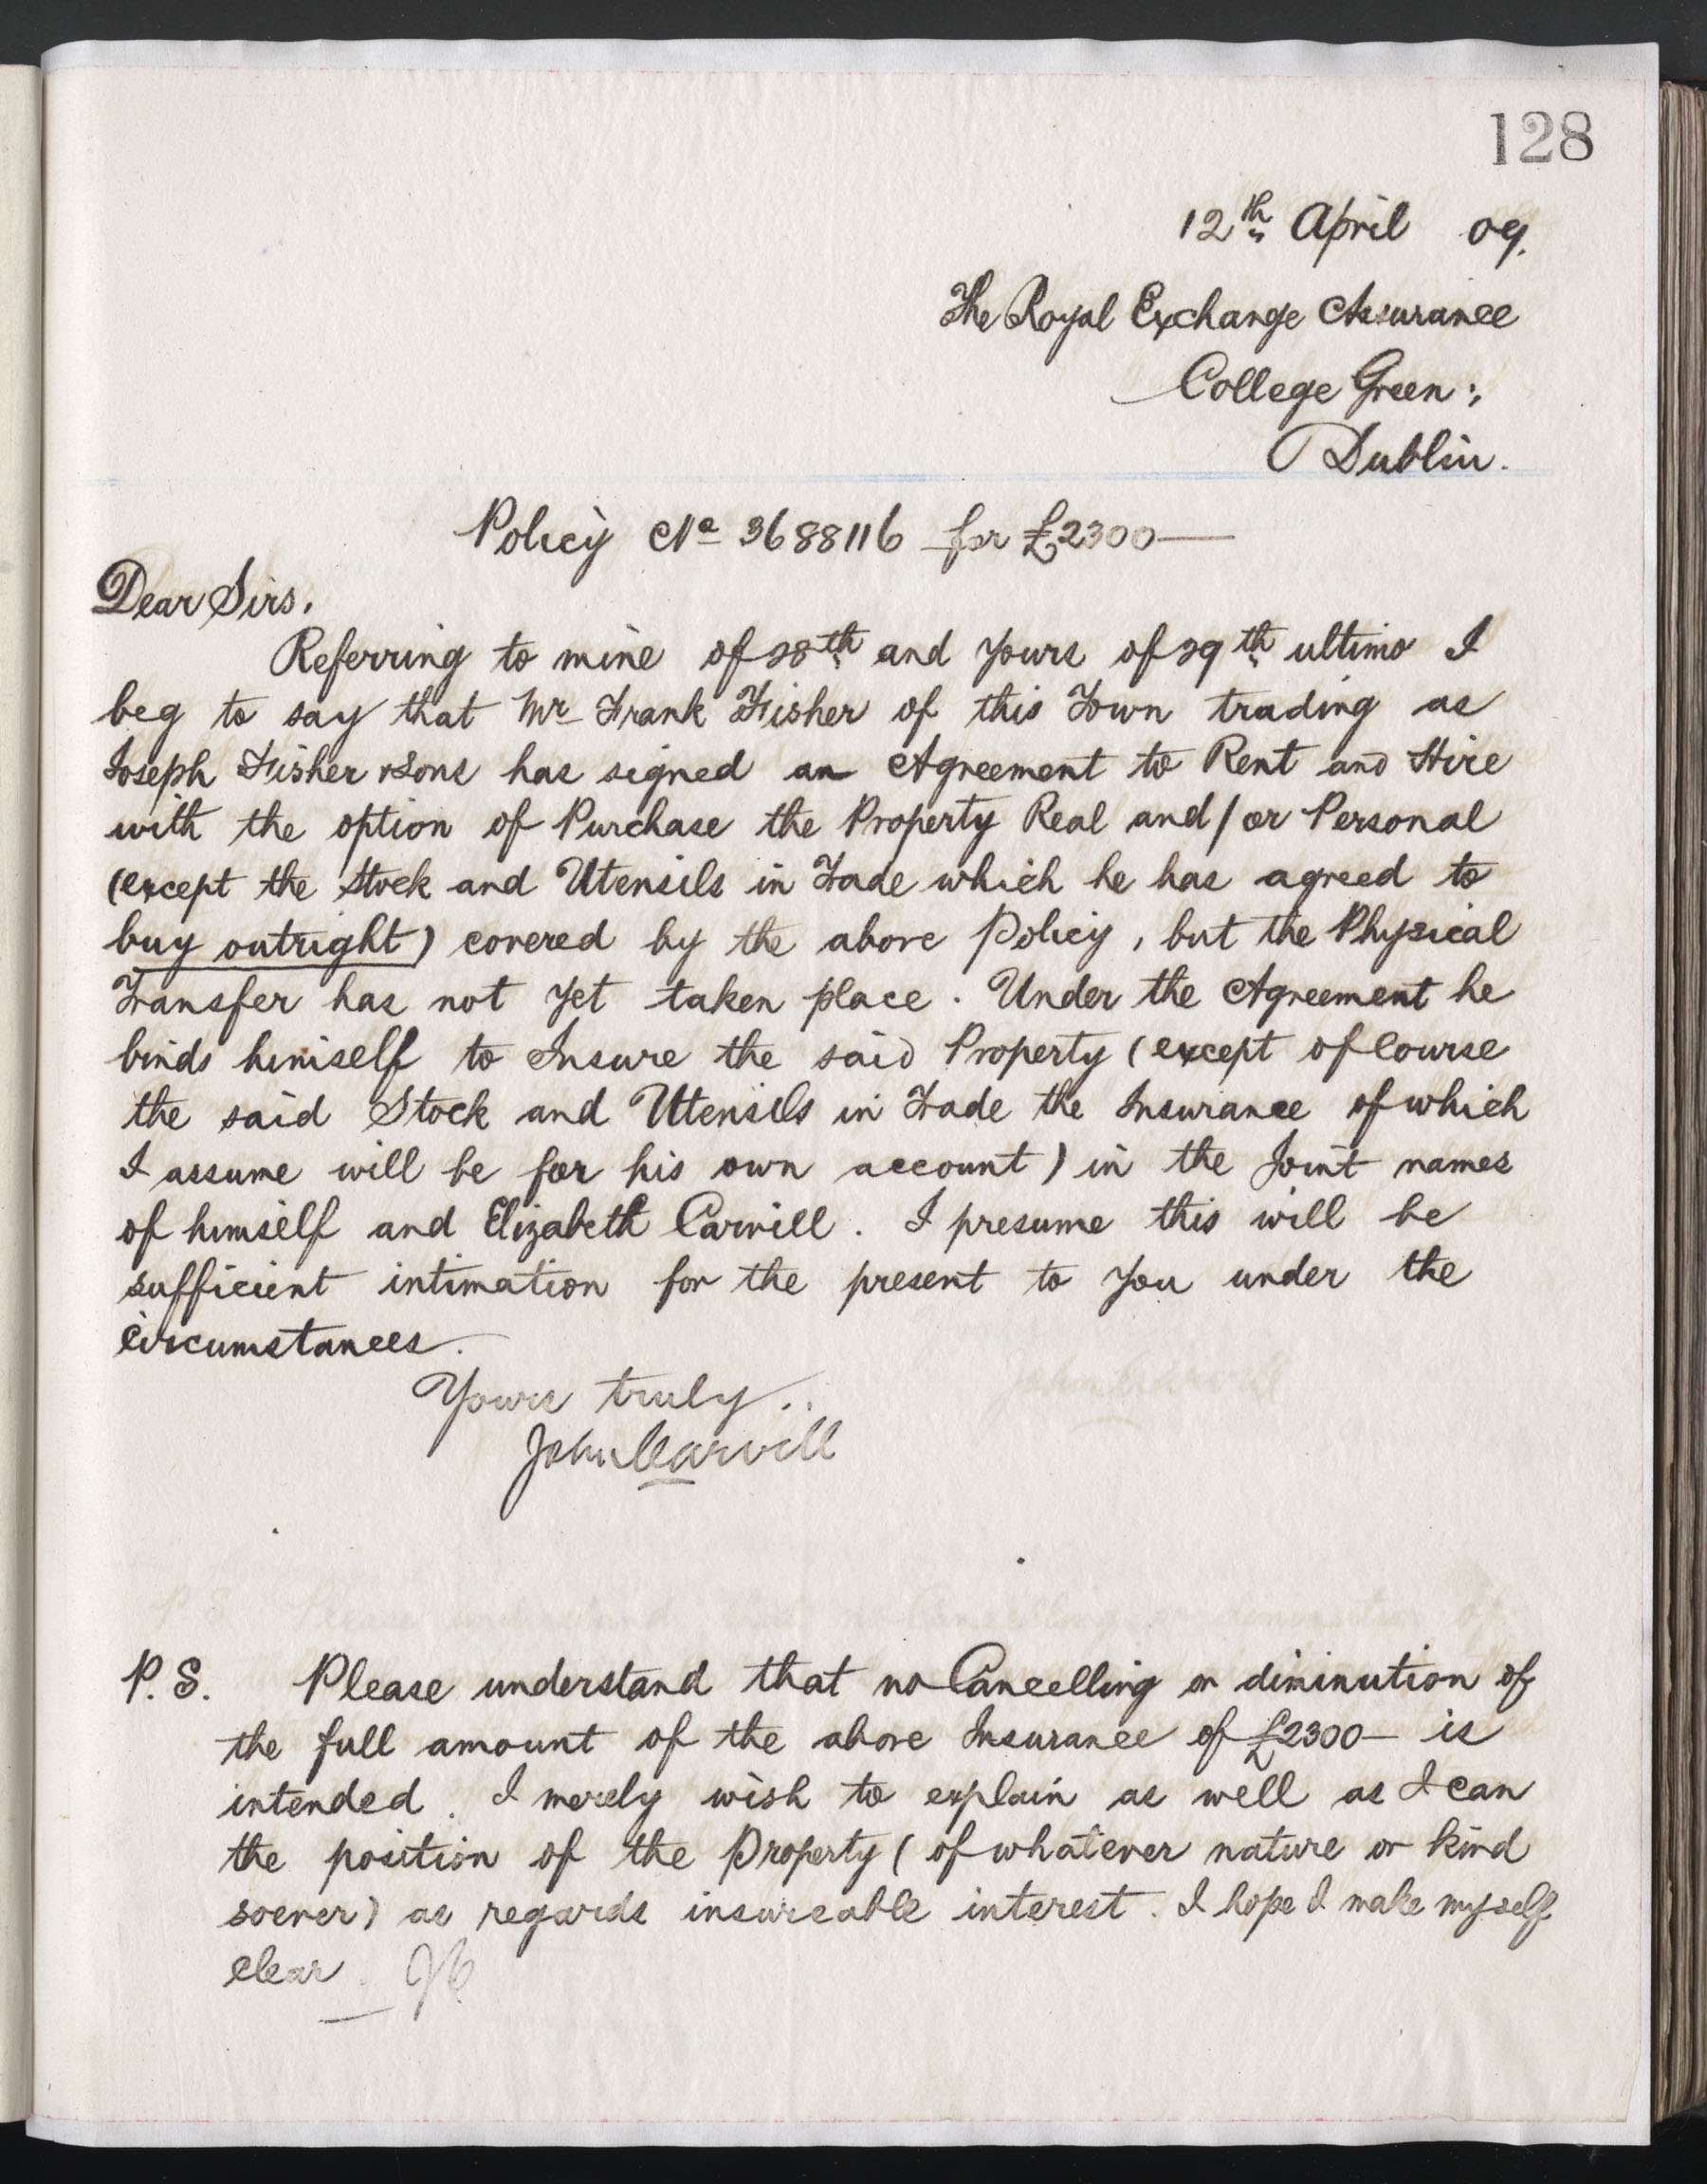 128
12th April 09.
The Royal Exchange Assurance
College Green:,
Dublin.
Policy No 3688116 for £2300—
Dear Sirs.
Referring to mine of 28th and yours of 29th ultimo I
beg to say that Mr Frank Fisher of this Town trading as
Joseph Fisher & Sons has signed an Agreement to Rent and Hire
with the option of Purchase the Property Real and/or Personal
(except the Stock and Utensils in Trade which he has agreed to
buy outright) covered by the above Policy, but the Physical
Transfer has not yet taken place. Under the Agreement he
binds himself to Insure the said Property (except of Course
the said Stock and Utensils in Trade the Insurance of which
I assume will be for his own account) in the Joint names
of himself and Elizabeth Carvill. I presume this will be
sufficient intimation for the present to you under the
Circumstances.
Yours truly..
John Carvill
P.S. Please understand that no Cancelling or diminution of
the full amount of the above Insurance of £2300— is
intended. I merely wish to explain as well as I can
the position of the Property (of whatever nature or kind
soever) as regards insureable interest. I hope I make myself
clear. JC